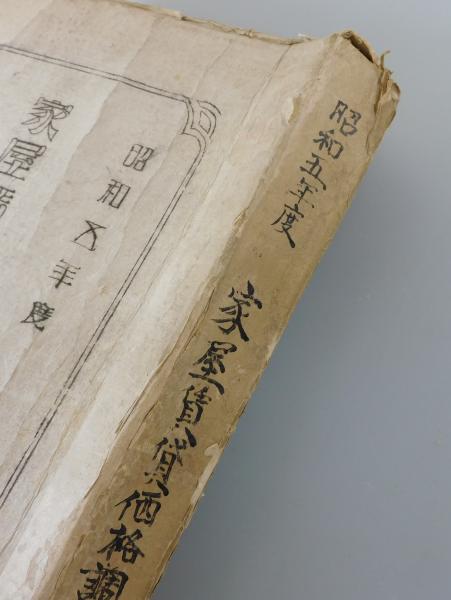 昭和五年度
家屋賃貸価格調
昭和五年度
家屋賃